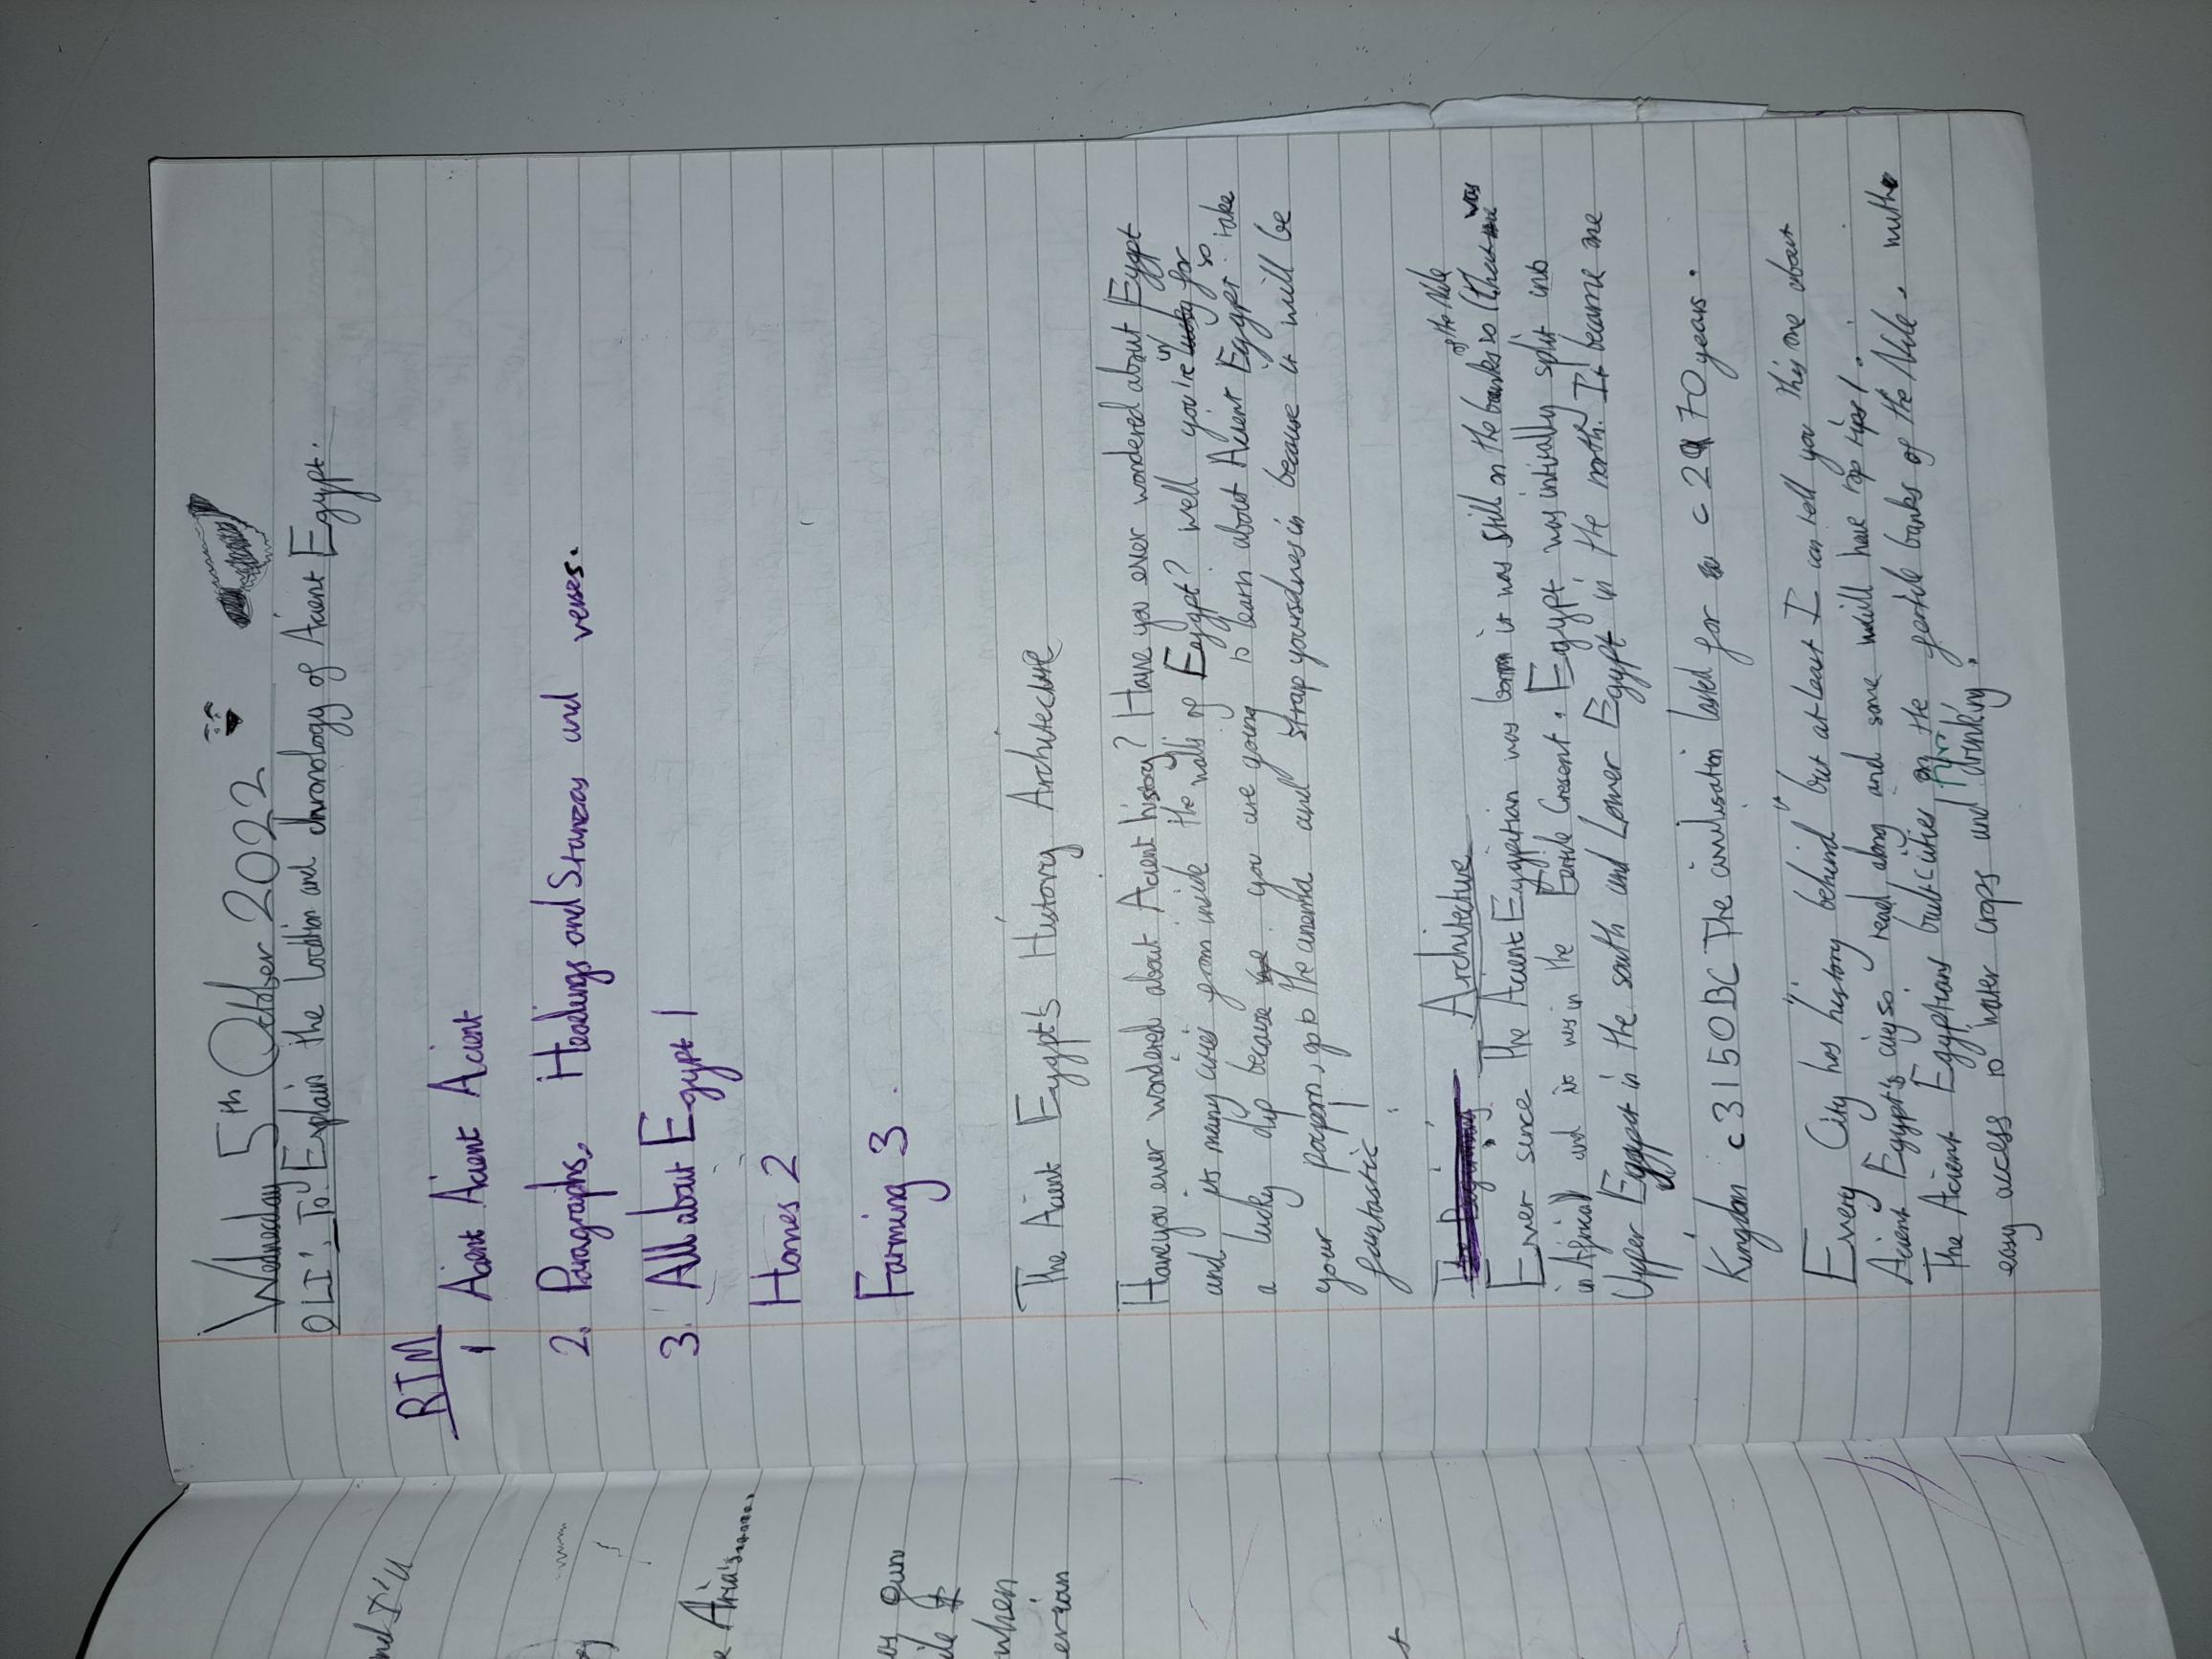 Wednesday 5th October 2022
QLI: To Explain the location and chronology of Acient Egypt.
RTM
1 Acient Acient Acient
2. Paragraphs, Headings and Stanzas and verses.
3. All about Egypt 1
Homes 2
Farming 3.
The Acient Eygpt's History Architecture
Have you ever wondered about Acient history? Have you ever wondered about Eygpt
and it's many cities from inside the walls of Eygypt? well you're in for
a lucky dip because you are going to learn about Acient Egypt so take
your popcorn, go to the cinema and strap yourselves in because it will be
fantastic!
Architective
of the Nile
Ever sence The Acient Egyptian was born it was still on the banks so (that was
in Africa) and it was in the Fertile Cresent. Egypt was initially split into
Upper Egypt in the south and Lower Egypt in the north. It became one
Kingdon c3150BC The civilisation lasted for c 2970 years.
Every City has history "behind" but at least I can tell you this one about
Acient Egypt's citys. so read along and some will have top tips!
The Acient Egyptians built cities on the fertile banks of the Nile. with
easy access to water crops and for drinking.
and I'll
when